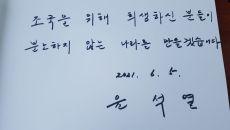 조국을 위해 희생하신 분들이
분노하지 않는 나라를 만들겠습니다
2021. 6. 5.
윤 석 열